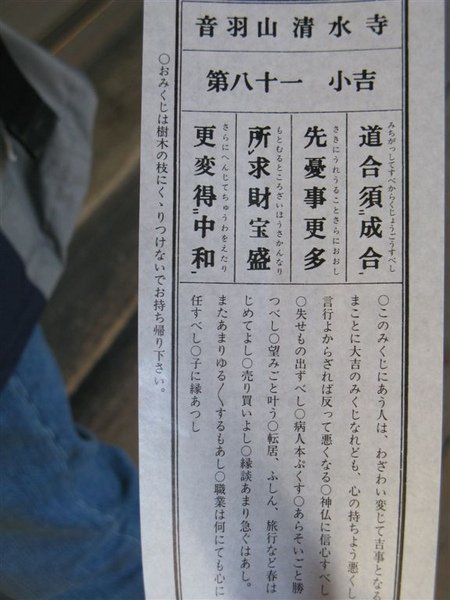 音羽山清水寺
第八十一　小吉
みちがっしてすべからくじょうごうすべし
道合須成合
さきにうれうることさらにおおし
先憂事更多
もとむるところざいほうさかんなり
所求財宝盛
さらにへんじてちゅうわをえたり
更変得中和
○このみくじにあう人は、わざわい変じて吉事となる
まことに大吉のみくじなれども、心の持ちよう悪くし
言行よからざれば反って悪くなる○神仏に信心すべし
○失せもの出ずべし○病人本ぷくす○あらそいごと勝
つべし○望みごと叶う○転居、ふしん、旅行など春は
じめてよし○売り買いよし○縁談あまり急ぐはあし。
またあまりゆる〱するもあし○職業は何にても心に
任すべし○子に縁あつし
○おみくじは樹木の枝にくゝりつけないでお持ち帰り下さい。